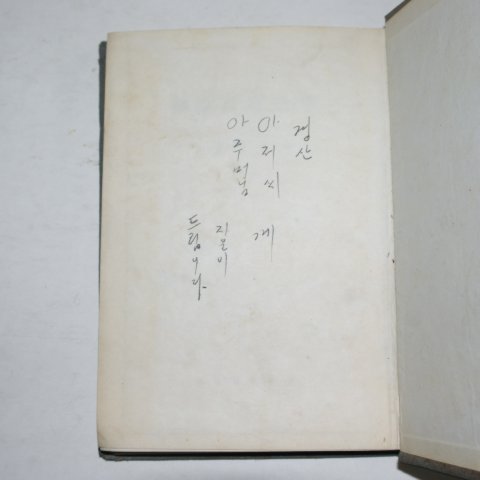 경산
아저씨 께
아주머님
지은이
드립니다.